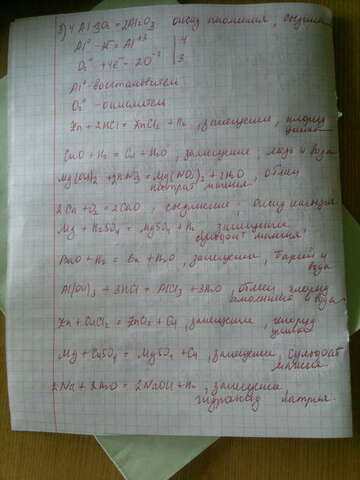 3) 4Al + 3O₂ = 2Al₂O₃ оксид алюминия, соединение
Al⁰ - 3e⁻ = Al⁺³ | 4
O₂⁰ + 4e⁻ = 2O⁻² | 3
Al⁰ - восстановитель
O₂⁰ - окислитель
Zn + 2HCl = ZnCl₂ + H₂, замещение, хлорид
цинка
CuO + H₂ = Cu + H₂O, замещение, медь и вода
Mg(OH)₂ + 2HNO₃ = Mg(NO₃)₂ + 2H₂O, обмен
нитрат магния
2Ca + O₂ = 2CaO, соединение, оксид кальция
Mg + H₂SO₄ = MgSO₄ + H₂, замещение
сульфат магния
BaO + H₂ = Ba + H₂O, замещение, барий и
вода
Al(OH)₃ + 3HCl = AlCl₃ + 3H₂O, обмен, хлорид
алюминия и вода
Zn + CuCl₂ = ZnCl₂ + Cu, замещение, хлорид
цинка
Mg + CuSO₄ = MgSO₄ + Cu, замещение, сульфат
магния
2Na + 2H₂O = 2NaOH + H₂, замещение,
гидроксид натрия.